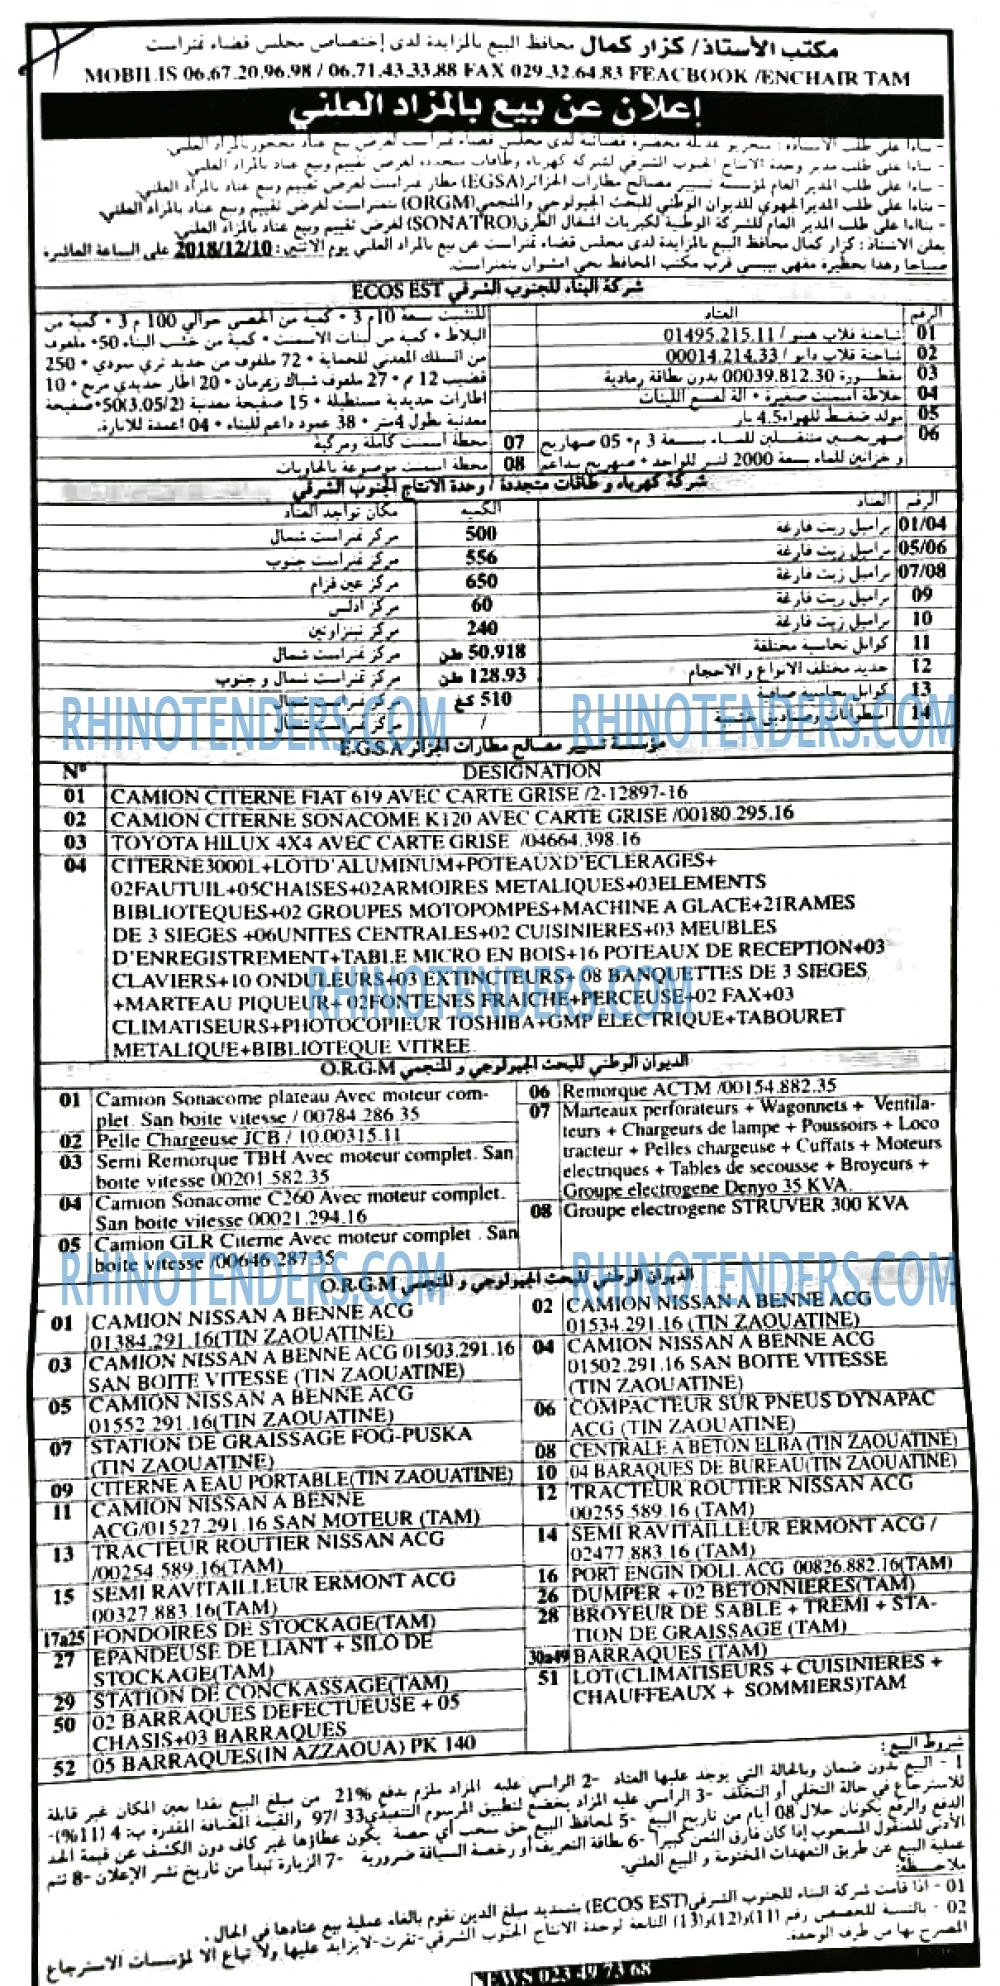 مكتب الأستاذ/ كزار كمال محافظ البيع بالمزايدة لدى إختصاص مجلس قضاء تمنراست
MOBILIS 06.67.20.96.98 / 06.71.43.33.88 FAX 029.32.64.83 FEACBOOK /ENCHAIR TAM
إعلان عن بيع بالمزاد العلني
- بناءا على طلب مدير وحدة الانتاج الجنوب الشرقي لشركة كهرباء وطاقات متجددة لغرض تقييم وبيع عتاد بالمزاد العلني
- بناءا على طلب المدير العام لمؤسسة تسيير مصالح مطارات الجزائر(EGSA) مطار تمنراست لغرض تقييم وبيع عتاد بالمزاد العلني
- بناءا على طلب المديرالجهوي للديوان الوطني للبحث الجيولوجي والمنجمي(ORGM) بتمنراست لغرض تقييم وبيع عتاد بالمزاد العلني
- بناءا على طلب المدير العام للشركة الوطنية لكبريات اشغال الطرق(SONATRO) لغرض تقييم وبيع عتاد بالمزاد العلني
يعلن الاستاذ: كزار كمال محافظ البيع بالمزايدة لدى مجلس قضاء تمنراست عن بيع بالمزاد العلني يوم الاثنين: 2018/12/10 على الساعة العاشرة
صباحا وهذا بحظيرة مقهى بيبسي قرب مكتب المحافظ بحي امشوان بتمنراست.
شركة البناء للجنوب الشرقي ECOS EST
الرقم العتاد
01 شاحنة قلاب هينو /01495.215.11
02 شاحنة قلاب دايو /00014.214.33
03 مقطورة 00039.812.30 بدون بطاقة رمادية
04 خلاطة اسمنت صغيرة + الة لصنع اللبنات
05 مولد ضغط للهواء4.5 بار
06 صهريجين متنقلين للماء بسعة 3 م+ 05 صهاريج
وخزانين للماء بسعة 2000 لتر للواحد + صهريج بداعم
للتثبيت بسعة 10م3 + كمية من الحصى حوالي 100 م3 + كمية من
البلاط + كمية من لبنات الاسمنت + كمية من خشب البناء 50+ ملفوف
من السلك المعدني للحماية + 72 ملفوف من حديد تري سودي + 250
قضيب 12 م + 27 ملفوف شباك زيمرمان + 20 اطار حديدي مربع + 10
اطارات حديدية مستطيلة + 15 صفيحة معدنية (3.05/2)50+ صفيحة
معدنية بطول 4متر + 38 عمود داعم للبناء + 04 اعمدة للانارة.
07 محطة اسمنت كاملة ومركبة
08 محطة اسمنت موضوعة بالحاويات
شركة كهرباء و طاقات متجددة / وحدة الانتاج الجنوب الشرقي
الرقم العتاد الكمية مكان تواجد العتاد
01/04 براميل زيت فارغة 500 مركز تمنراست شمال
05/06 براميل زيت فارغة 556 مركز تمنراست جنوب
07/08 براميل زيت فارغة 650 مركز عين قزام
09 براميل زيت فارغة 60 مركز ادلس
10 براميل زيت فارغة 240 مركز تينزاوتين
11 كوابل نحاسية مختلفة 50,918 طن مركز تمنراست شمال
12 حديد مختلف الانواع و الاحجام 128.93 طن مركز تمنراست شمال و جنوب
13 كوابل نحاسية صافية 510 كغ مركز تمنراست شمال
14 اسطوانات وصناديق خشبية / مركز تمنراست شمال
RHINOTENDERS.COM RHINOTENDERS.COM
مؤسسة تسيير مصالح مطارات الجزائر E.G.S.A
N° DESIGNATION
01 CAMION CITERNE FIAT 619 AVEC CARTE GRISE /2-12897-16
02 CAMION CITERNE SONACOME K120 AVEC CARTE GRISE /00180.295.16
03 TOYOTA HILUX 4X4 AVEC CARTE GRISE /04664.398.16
04 CITERNE3000L+LOTD'ALUMINUM+POTEAUXD'ECLERAGES+
02FAUTUIL+05CHAISES+02ARMOIRES METALIQUES+03ELEMENTS
BIBLIOTEQUES+02 GROUPES MOTOPOMPES+MACHINE A GLACE+21RAMES
DE 3 SIEGES +06UNITES CENTRALES+02 CUISINIERES+03 MEUBLES
D'ENREGISTREMENT+TABLE MICRO EN BOIS+16 POTEAUX DE RECEPTION+03
CLAVIERS+10 ONDULEURS+03 EXTINCTEURS+ 08 BANQUETTES DE 3 SIEGES
RHINOTENDERS.COM
+MARTEAU PIQUEUR+ 02FONTENES FRAICHE+PERCEUSE+02 FAX+03
CLIMATISEURS+PHOTOCOPIEUR TOSHIBA+GMP ELECTRIQUE+TABOURET
METALIQUE+BIBLIOTEQUE VITREE.
الديوان الوطني للبحث الجيولوجي و المنجمي O.R.G.M
01 Camion Sonacome plateau Avec moteur com-
plet. San boite vitesse / 00784.286.35
02 Pelle Chargeuse JCB / 10.00315.11
03 Semi Remorque TBH Avec moteur complet. San
boite vitesse 00201.582.35
04 Camion Sonacome C260 Avec moteur complet.
San boite vitesse 00021.294.16
05 Camion GLR Citerne Avec moteur complet . San
boite vitesse /00646.287.35
06 Remorque ACTM /00154.882.35
07 Marteaux perforateurs + Wagonnets + Ventila-
teurs + Chargeurs de lampe + Poussoirs + Loco
tracteur + Pelles chargeuse + Cuffats + Moteurs
electriques + Tables de secousse + Broyeurs +
Groupe electrogene Denyo 35 KVA.
08 Groupe electrogene STRUVER 300 KVA
RHINOTENDERS.COM RHINOTENDERS.COM
الديوان الوطني للبحث الجيولوجي و المنجمي O.R.G.M
01 CAMION NISSAN A BENNE ACG
01384.291.16(TIN ZAOUATINE)
02 CAMION NISSAN A BENNE ACG
01534.291.16 (TIN ZAOUATINE)
03 CAMION NISSAN A BENNE ACG 01503.291.16
SAN BOITE VITESSE (TIN ZAOUATINE)
04 CAMION NISSAN A BENNE ACG
01502.291.16 SAN BOITE VITESSE
(TIN ZAOUATINE)
05 CAMION NISSAN A BENNE ACG
01552.291.16(TIN ZAOUATINE)
06 COMPACTEUR SUR PNEUS DYNAPAC
ACG (TIN ZAOUATINE)
07 STATION DE GRAISSAGE FOG-PUSKA
(TIN ZAOUATINE)
08 CENTRALE A BETON ELBA (TIN ZAOUATINE)
09 CITERNE A EAU PORTABLE(TIN ZAOUATINE)
10 04 BARAQUES DE BUREAU(TIN ZAOUATINE)
11 CAMION NISSAN A BENNE
ACG/01527.291.16 SAN MOTEUR (TAM)
12 TRACTEUR ROUTIER NISSAN ACG
00255.589.16 (TAM)
13 TRACTEUR ROUTIER NISSAN ACG
/00254.589.16(TAM)
14 SEMI RAVITAILLEUR ERMONT ACG /
02477.883.16 (TAM)
15 SEMI RAVITAILLEUR ERMONT ACG
00327.883.16(TAM)
16 PORT ENGIN DOLL ACG 00826.882.16(TAM)
17a25 FONDOIRES DE STOCKAGE(TAM)
26 DUMPER + 02 BETONNIERES(TAM)
27 EPANDEUSE DE LIANT + SILO DE
STOCKAGE(TAM)
28 BROYEUR DE SABLE + TREMI + STA-
TION DE GRAISSAGE (TAM)
29 STATION DE CONCKASSAGE(TAM)
30a49 BARRAQUES (TAM)
50 02 BARRAQUES DEFECTUEUSE + 05
CHASIS+03 BARRAQUES
51 LOT(CLIMATISEURS + CUISINIERES +
CHAUFFEAUX + SOMMIERS)TAM
52 05 BARRAQUES(IN AZZAOUA) PK 140
شروط البيع:
1 - البيع بدون ضمان وبالحالة التي يوجد عليها العتاد -2 الراسي عليه المزاد ملزم بدفع 21% من مبلغ البيع نقدا بعين المكان غير قابلة
للاسترجاع في حالة التخلي أو التخلف -3 الراسي عليه المزاد يخضع لتطبيق المرسوم التنفيذي33 /97 والقيمة المضافة المقدرة ب: 4 (11%)-
الدفع والرفع يكونان خلال 08 أيام من تاريخ البيع -5 لمحافظ البيع حق سحب أي حصة يكون عطاؤها غير كاف دون الكشف عن قيمة الحد
الأدنى للمنقول المسحوب إذا كان فارق الثمن كبيرا -6 بطاقة التعريف أو رخصة السياقة ضرورية -7 الزيارة تبدأ من تاريخ نشر الإعلان -8 تتم
عملية البيع عن طريق التعهدات المختومة و البيع العلني.
ملاحظة:
01 - اذا قامت شركة البناء للجنوب الشرقي(ECOS EST) بتسديد مبلغ الدين نقوم بالغاء عملية بيع عتادها في الحال.
02 - بالنسبة للحصص رقم (11)و(12)و(13) التابعة لوحدة الانتاج الجنوب الشرقي-تقرت-لايزايد عليها ولا تباع الا لمؤسسات الاسترجاع
المصرح بها من طرف الوحدة.
NEWS 023 49 73 68